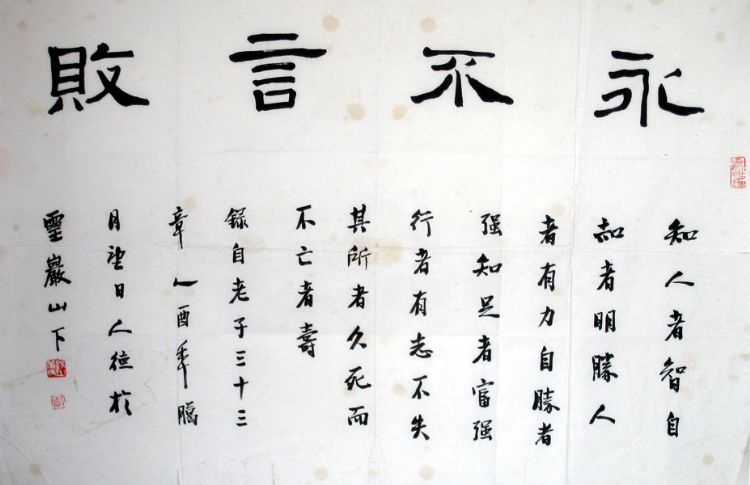 永不言敗
知人者智自
知者明勝人
者有力自勝者
强知足者富强
行者有志不失
其所者久死而
不亡者壽
録自老子三十三
章乙酉年臘
月望日人於
靈巖山下